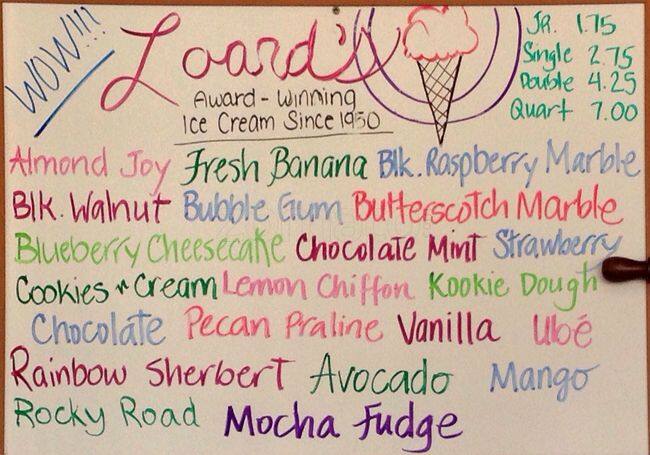 WOW!!!
Loard's
Award-Winning
Ice Cream Since 1950
JR. 1.75
Single 2.75
Double 4.25
Quart 7.00
Almond Joy Fresh Banana Blk. Raspberry Marble
Blk. Walnut Bubble Gum Butterscotch Marble
Blueberry Cheesecake Chocolate Mint Strawberry
Cookies n Cream Lemon Chiffon Kookie Dough
Chocolate Pecan Praline Vanilla Ubé
Rainbow Sherbert Avocado Mango
Rocky Road Mocha Fudge